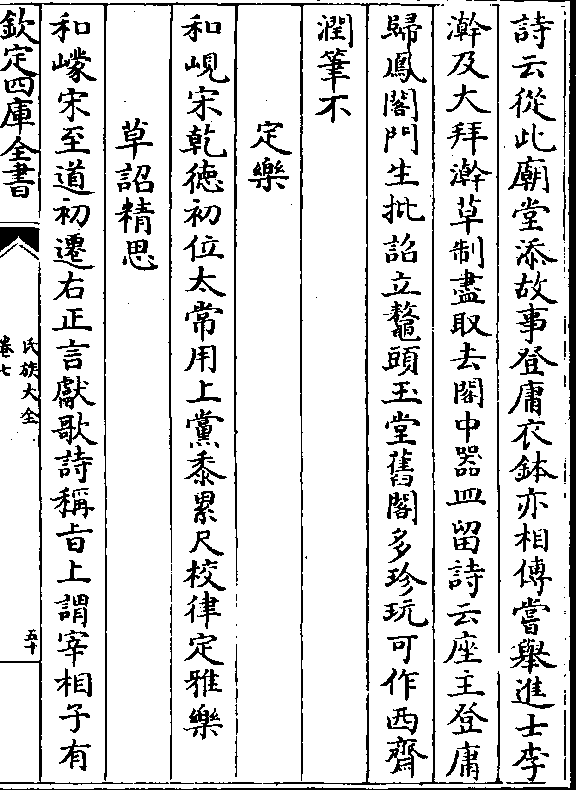 詩云從此廟堂添故事登庸衣鉢亦相傳嘗舉進士李
澣及大拜澣草制盡取去閣中器皿留詩云座主登庸
歸鳳閣門生批詔立鼇頭玉堂舊閣多珍玩可作西齋
潤筆不
定樂
和峴宋乾徳初位太常用上黨黍累尺校律定雅樂
草詔精思
和㠓宋至道初遷右正言獻歌詩稱旨上謂宰相子有
欽定四庫全書
氏族大全
卷七
五十